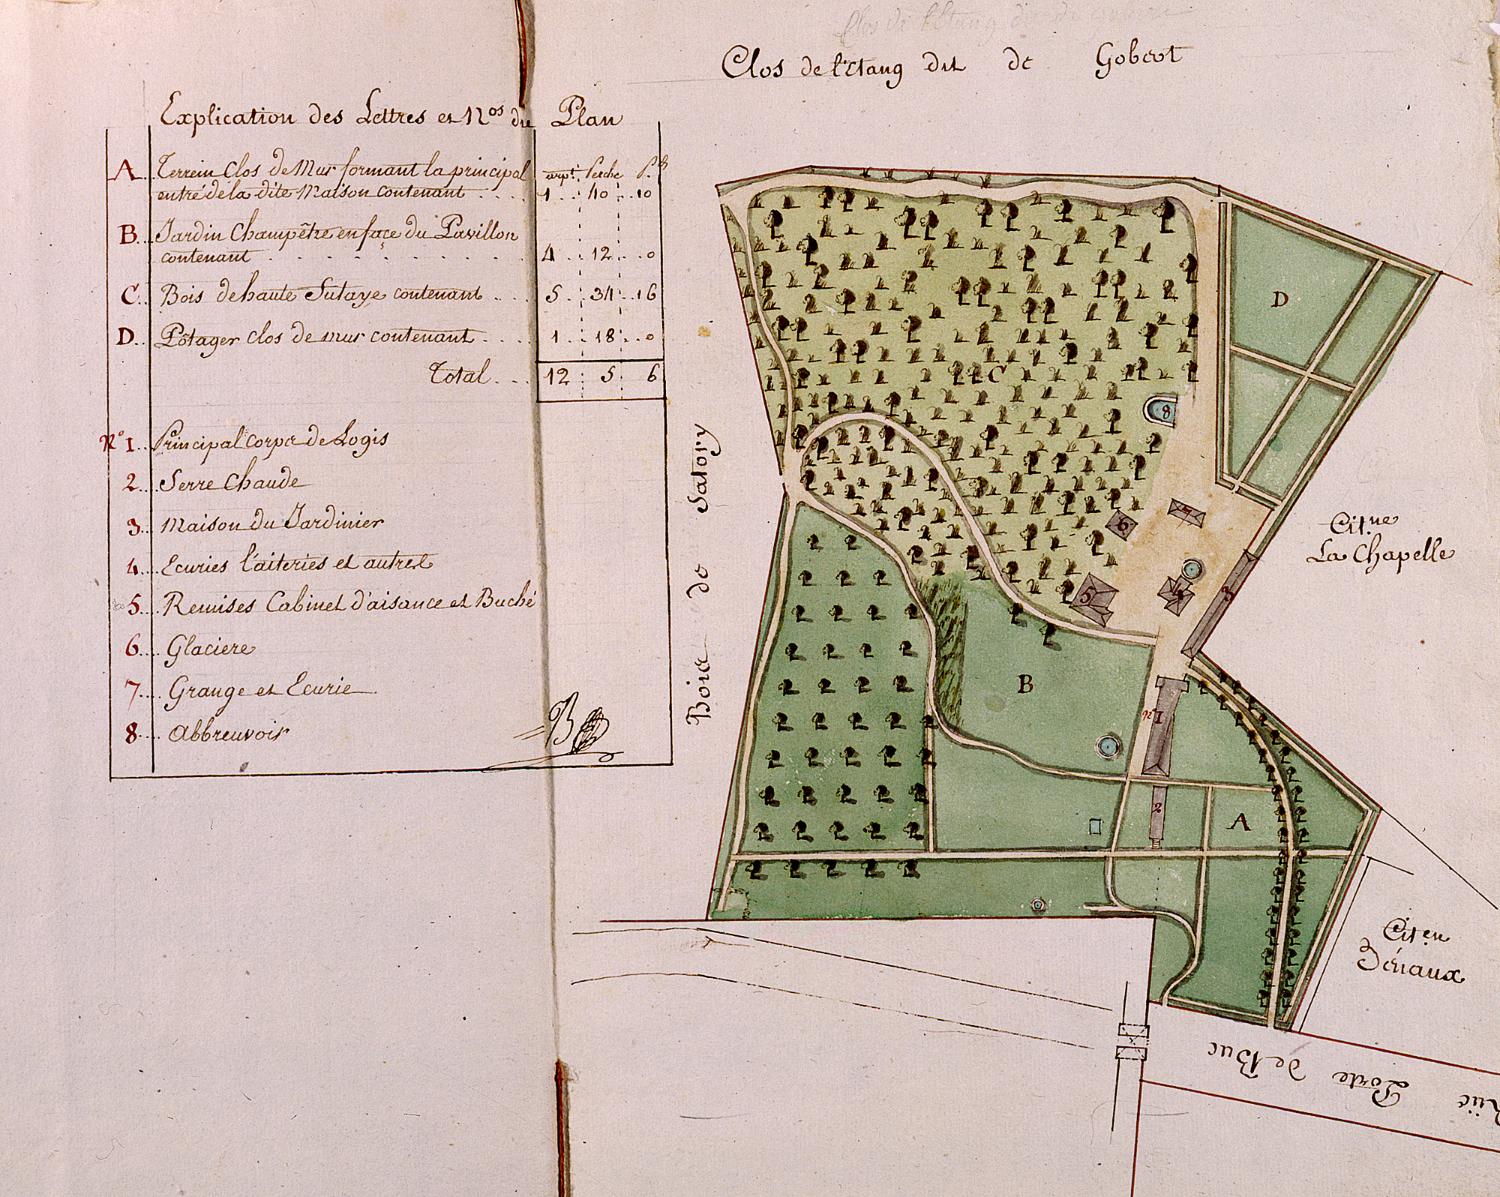 Clos de l'Etang dit de Gobert
Explication des Lettres et Nos du Plan
A Terrein Clos de Mur formant la principal arpt. Perche P.ds
entré de la dite Maison contenant 1 40 10
B Jardin Champêtre en façe du Pavillon
contenant 4 12 0
C Bois de haute Futaye contenant 5 34 16
D Potager clos de mur contenant 1 18 0
Total 12 5 6
No 1 Principal corps de Logis
2 Serre Chaude
3 Maison du Jardinier
4 Ecuries l'aiteries et autres
5 Remises Cabinet d'aisance et Buché
6 Glaciere
7 Grange et Ecurie
8 Abbreuvoir
Bois de Satory
D
C
8
7
6
5
4
3
B
No 1
2
A
Cit.ne
La Chapelle
Cit.en
Rüe Porte de Buc